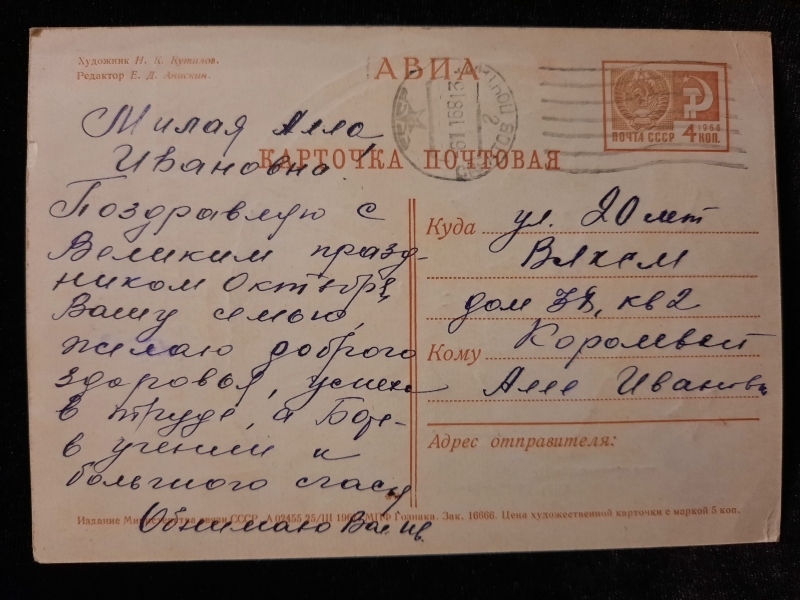 Художник Н. К. Кутилов.
Редактор Е. Д. Анискин.
АВИА
ПОЧТА СССР
1966
4 КОП.
КАРТОЧКА ПОЧТОВАЯ
Милая Алла
Ивановна!
Поздравляю с
Великим празд-
ником Октября,
Вашу семью,
желаю доброго
здоровья, успеха
в труде, а Боре-
в учении и
большого счастья
Обнимаю Вал. Ив.
Куда ул. 20 лет
Влксм
дом 38, кв 2
Кому Королевой
Алле Ивановне
Адрес отправителя:
Издание Министерства связи СССР. А 02455 25/III МПФ Гознака. Зак. 16666. Цена художественной карточки с маркой 5 коп.